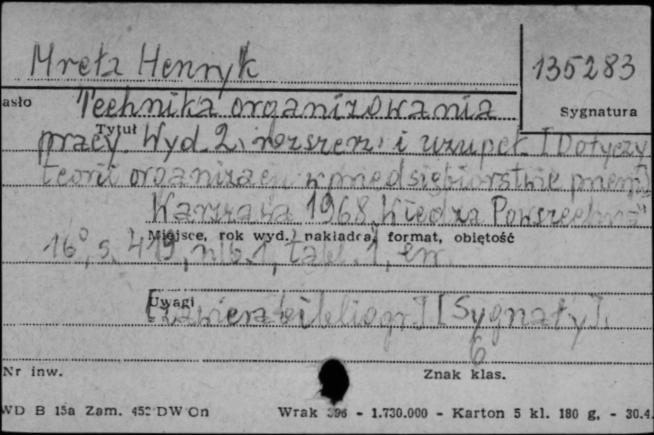 Mreła Henryk
135283
asło
Technika organizowania
Sygnatura
Tytuł
pracy. Wyd. 2, rozszerz. i uzupeł. [Dotyczy
teorii organizacji w przedsiębiorstwie przem.]
Warszawa 1968 "Wiedza Powszechna"
Miejsce, rok wyd., nakładca, format, objętość
16°, s. 419, nlb. 1, tabl. 1, err.
Uwagi
[Zawiera bibliogr.] [Sygnały].
6
Nr inw.
Znak klas.
WD B 15a Zam. 452 DW On Wrak 396 - 1.730.000 - Karton 5 kl. 180 g. - 30.4.